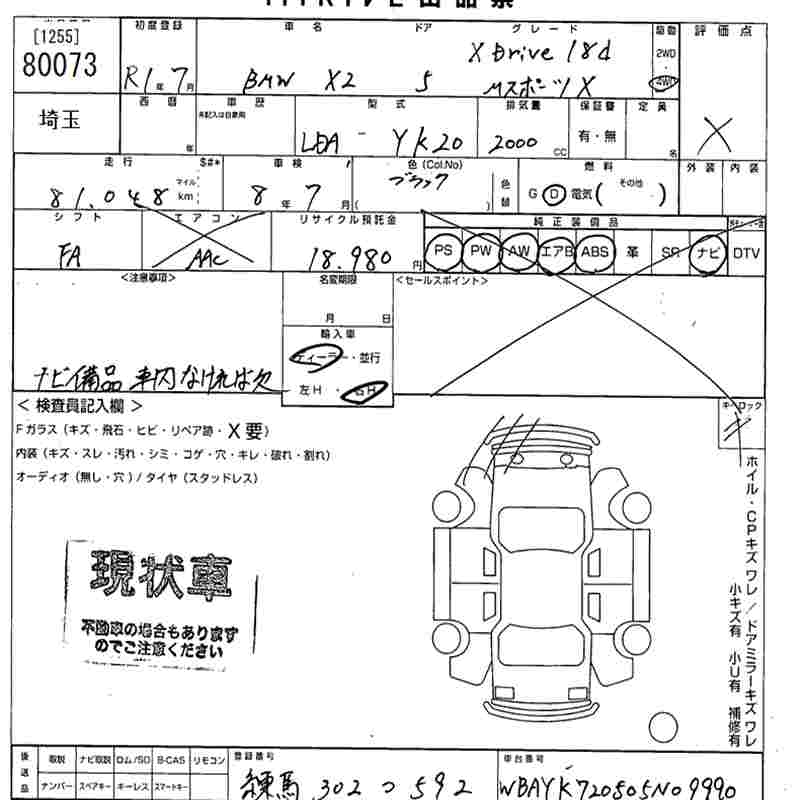 [1255]
80073
初度登録
R1年7月
車名
BMW X2
ドア
5
グレード
X Drive 18d
Mスポーツ X
駆動
2WD
・
4WD
評価点
X
埼玉
西暦
年
車歴
未記入は自家用
型式
LDA - YK20
排気量
2000 CC
保証書
有・無
定員
名
走行
81,048
マイル
km
$#*
車検
8年7月
色(Col.No)
ブラック
( )
色替
燃料
G D 電気( その他 )
外装
内装
シフト
FA
エアコン
AAC
リサイクル預託金
18,980円
純正装備品
PS PW AW エアB ABS 革 SR ナビ DTV
<注意事項>
ナビ備品 車内なければ欠
名変期限
月 日
輸入車
ディーラー・並行
左H・右H
<セールスポイント>
キーロック
< 検査員記入欄 >
Fガラス(キズ・飛石・ヒビ・リペア跡・X要)
内装(キズ・スレ・汚れ・シミ・コゲ・穴・キレ・破れ・割れ)
オーディオ(無し・穴)/タイヤ(スタッドレス)
現状車
不動車の場合もあります
のでご注意ください
ホイル・CPキズ ワレ / ドアミラーキズ ワレ
小キズ有 小U有 補修有
後送品
取説 ナビ取説 ロム/SD B-CAS リモコン
ナンバー スペアキー キーレス スマートキー
登録番号
練馬 302 つ 592
車台番号
WBAYK720505N09990